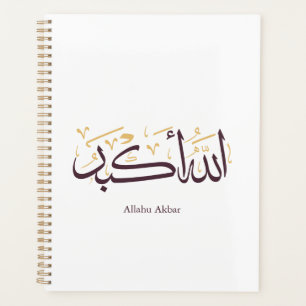 الله أكبر
Allahu Akbar